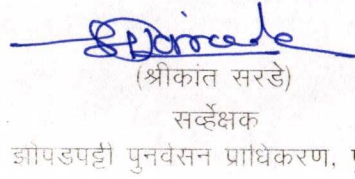 (श्रीकांत सरडे)
सर्व्हेक्षक
झोपडपट्टी पुनर्वसन प्राधिकरण,